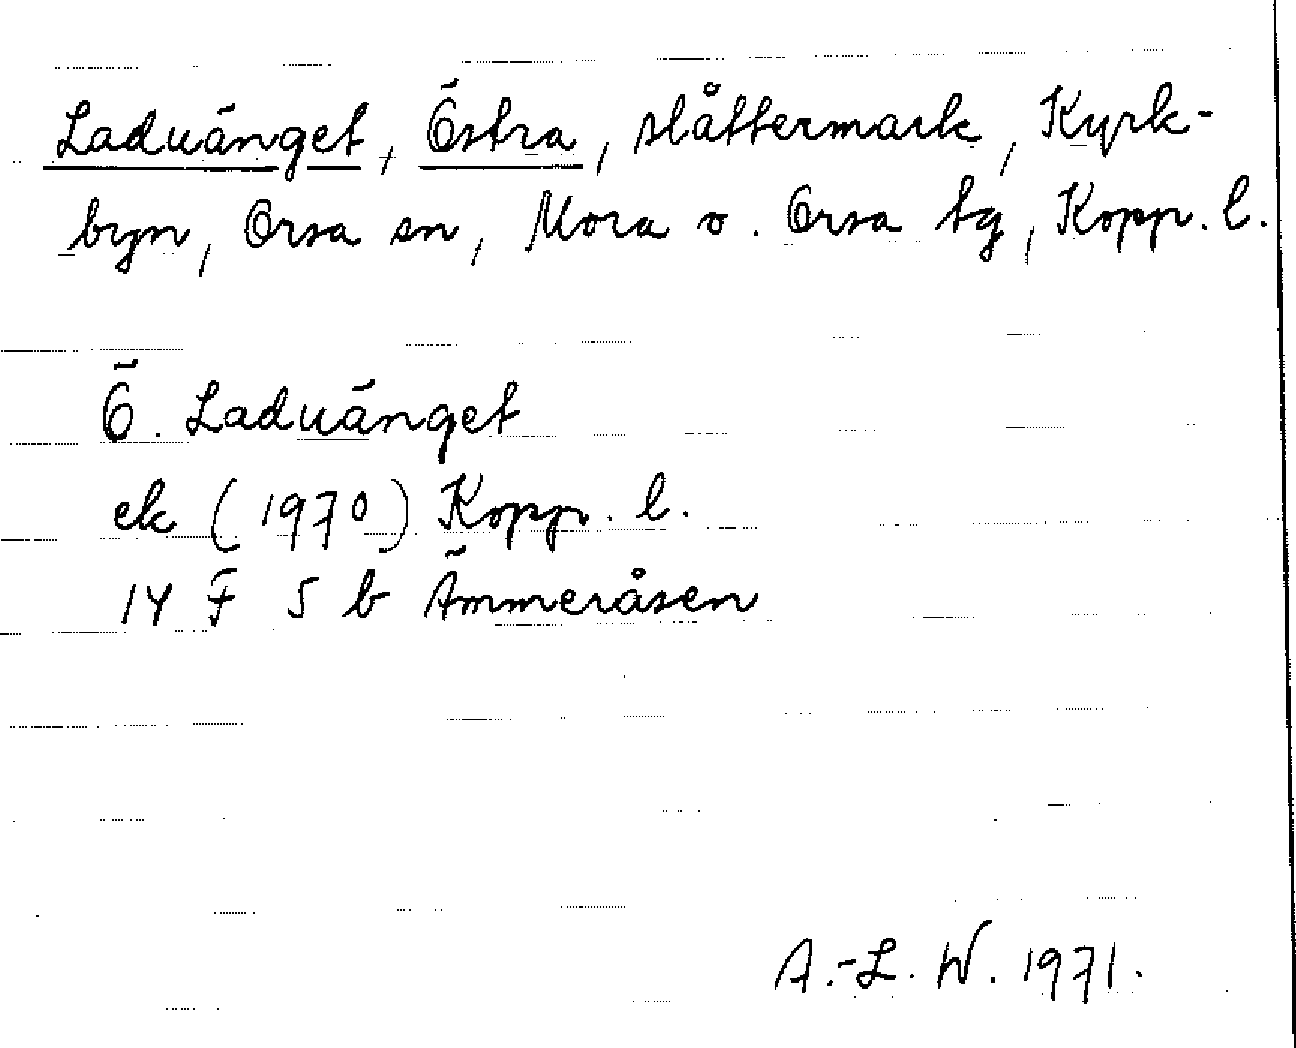 Laduänget, Östra, slåttermark, Kyrk-
byn, Orsa sn, Mora o. Orsa tg, Kopp. l.
Ö. Laduänget
ek (1970) Kopp. l.
14 F 5 b Ämmeråsen
A.-L. W. 1971.